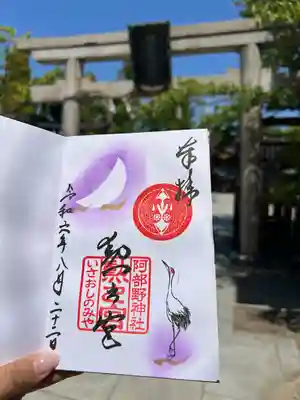 奉拝
勲之宮
阿部野神社
いさおしのみや
令和六年八月二十一日